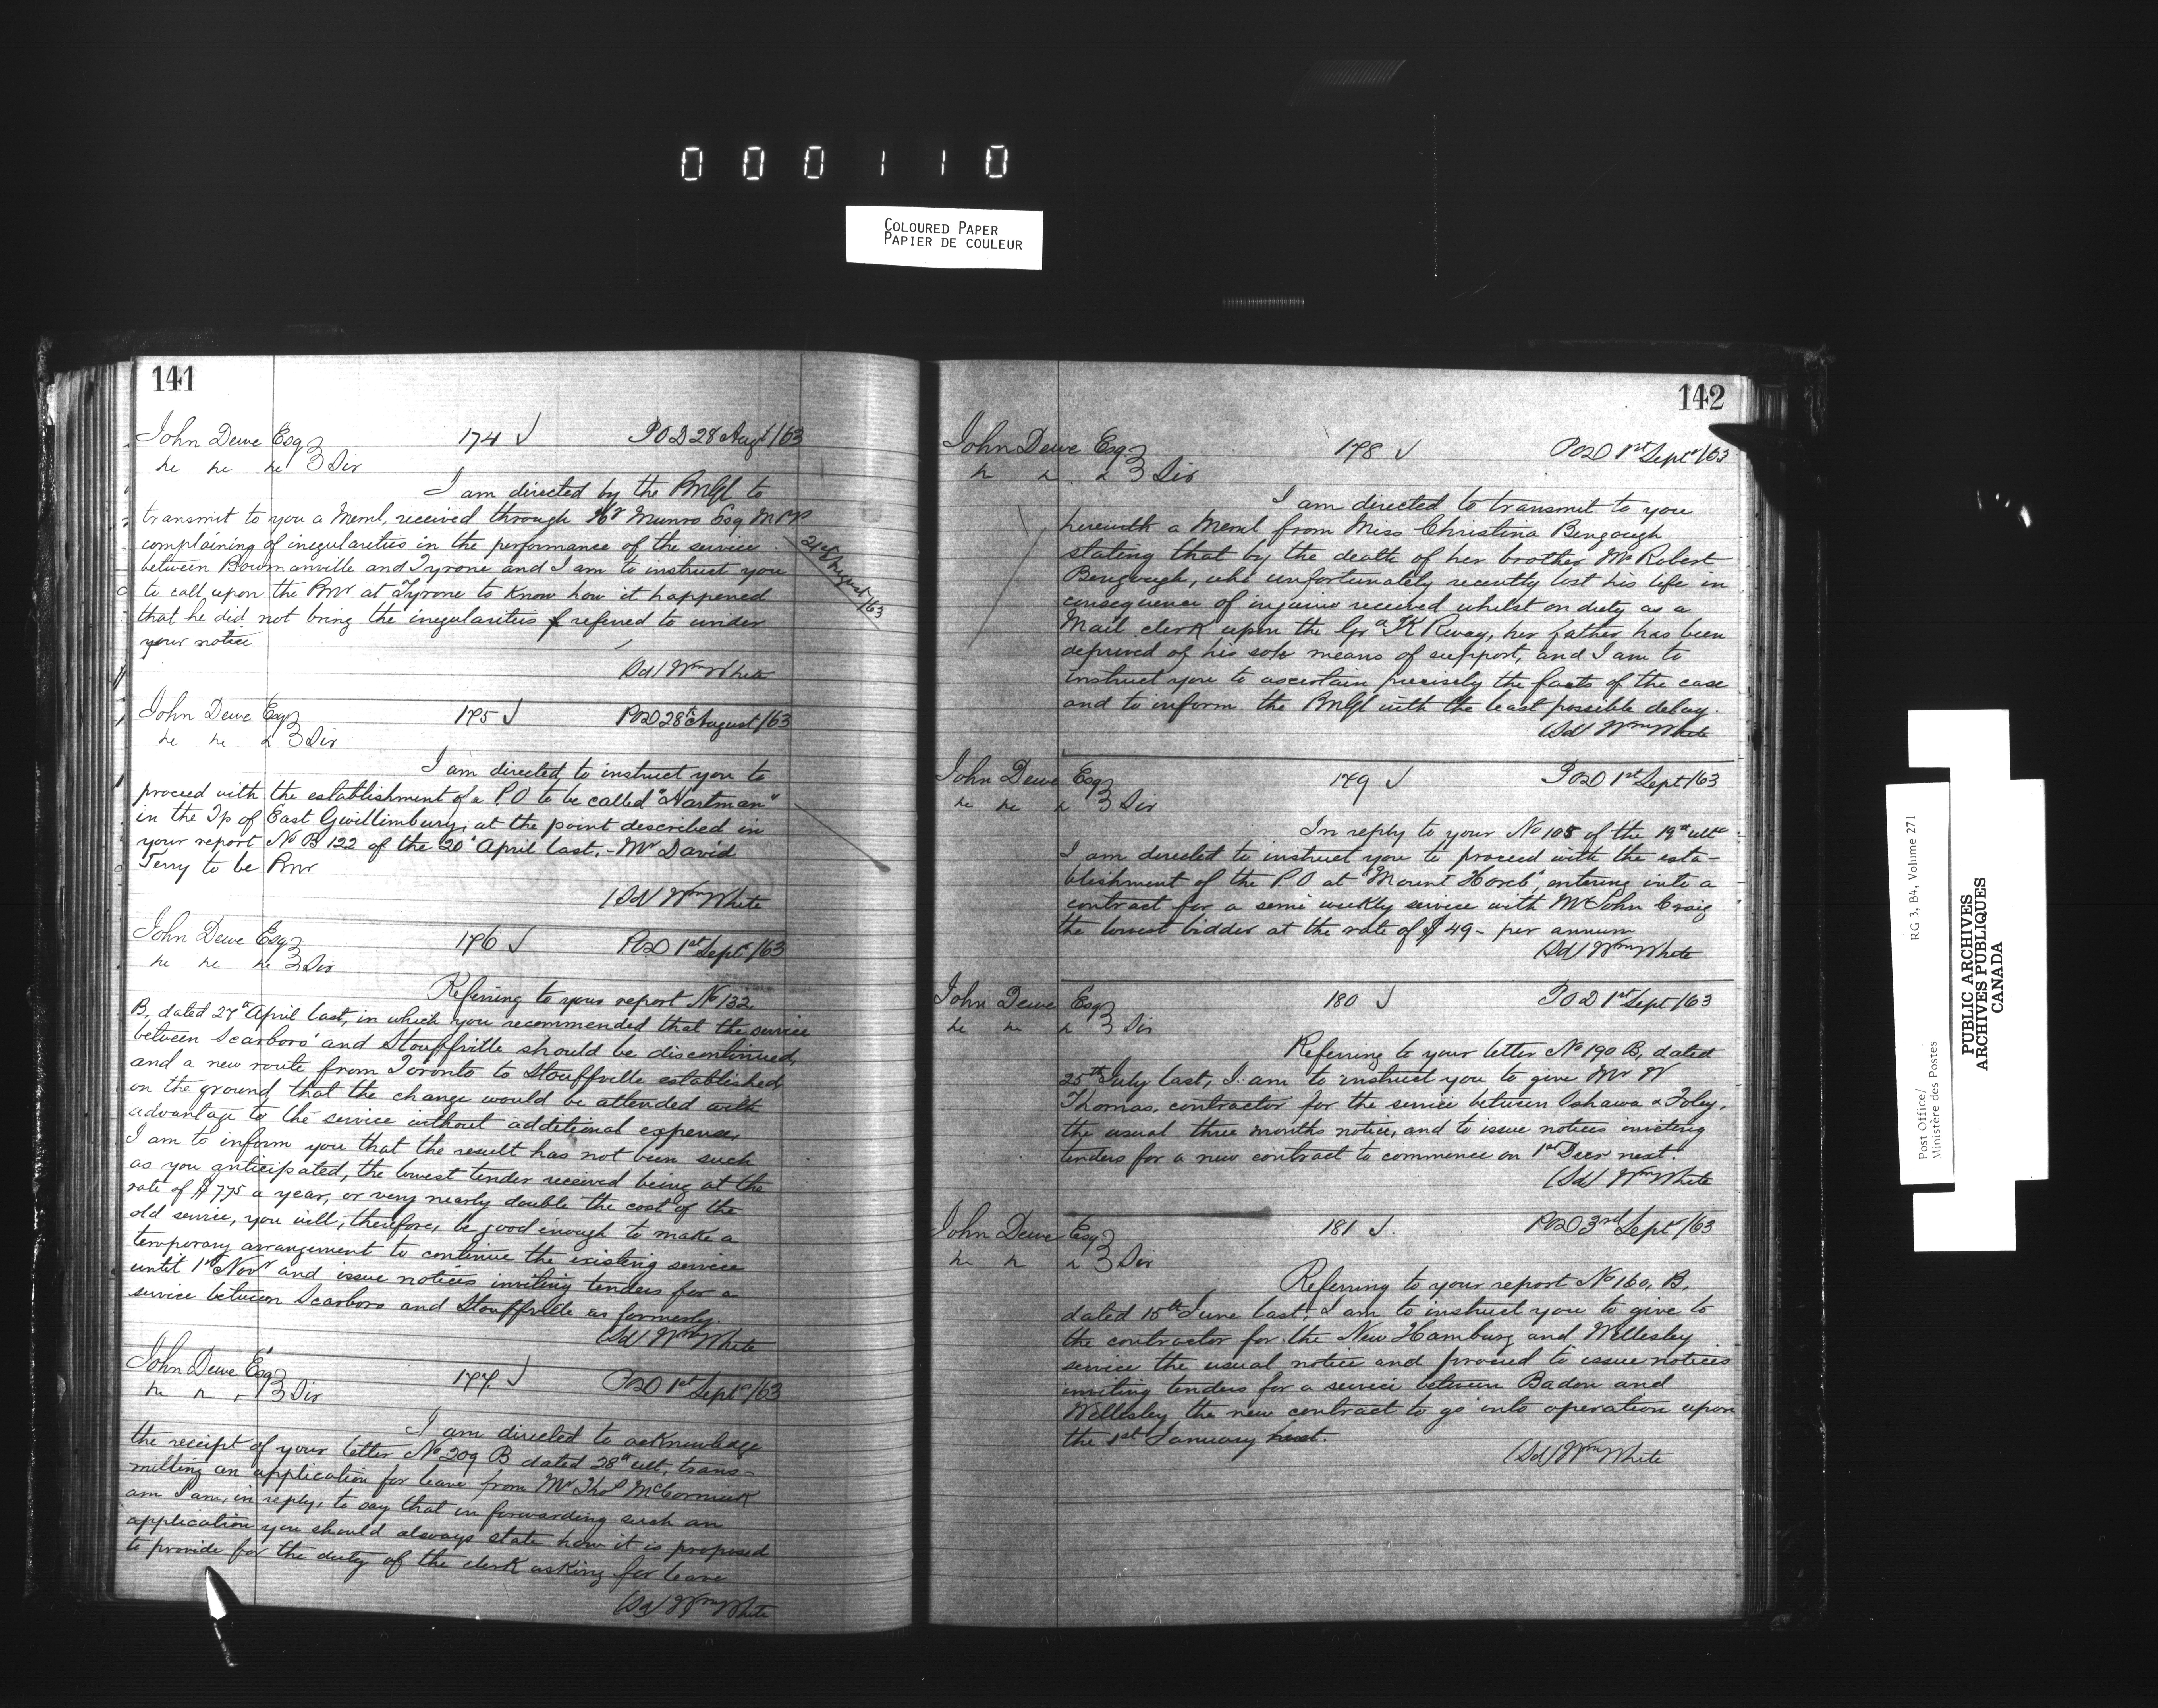 000110
COLOURED PAPER
PAPIER DE COULEUR
141
John Dewe Esq 174 ✓ POD 28 Augt/63
3 Div
I am directed by the PMGl to
transmit to you a Meml, received through Munro Esq MPP
complaining of iregularities in the performance of the service
between Bowmanville and Tyrone and I am to instruct you
to call upon the Pmr at Tyrone to know how it happened
that he did not bring the iregularities referred to under
your notice
(Sd) Wm White
John Dewe Esq 175 ✓ POD 28th August/63
3 Div
I am directed to instruct you to
proceed with the establishment of a P.O to be called "Hartman"
in the Tp of East Gwillimbury, at the point described in
your report No B 122 of the 20 April last, - Mr David
Terry to be Pmr
(Sd) Wm White
John Dewe Esq 176 ✓ POD 1st Sept/63
3 Div
Referring to your report No 132
B, dated 27th April last, in which you recommended that the service
between Scarboro' and Stouffville should be discontinued,
and a new route from Toronto to Stouffville established,
on the ground that the change would be attended with
advantage to the service without additional expense,
I am to inform you that the result has not been such
as you anticipated, the lowest tender received being at the
rate of $775 a year, or very nearly double the cost of the
old service, you will, therefore, be good enough to make a
temporary arrangement to continue the existing service
until 1st Novr and issue notices inviting tenders for a
service between Scarboro and Stouffville as formerly.
(Sd) Wm White
John Dewe Esq 177 ✓ POD 1st Sept/63
3 Div
I am directed to acknowledge
the receipt of your letter No 209 B dated 28th ult, trans-
mitting an application for leave from Mr Thos McCormick
am I am, in reply, to say that in forwarding such an
application you should always state how it is proposed
to provide for the duty of the clerk asking for leave
(Sd) Wm White
142
John Dewe Esq 178 ✓ POD 1st Sept/63
3 Div
I am directed to transmit to you
herewith a Meml from Miss Christina Bengough
stating that by the death of her brother Mr Robert
Bengough, who unfortunately recently lost his life in
consequence of injuries received whilst on duty as a
Mail clerk upon the Gr TK Rway, her father has been
deprived of his sole means of support, and I am to
instruct you to ascertain precisely the facts of the case
and to inform the PMGl with the least possible delay.
(Sd) Wm White
John Dewe Esq 179 ✓ POD 1st Sept/63
3 Div
In reply to your No 105 of the 19th ulto
I am directed to instruct you to proceed with the esta-
blishment of the P.O at "Mount Horeb", entering into a
contract for a semi weekly service with Mr John Craig
the lowest bidder at the rate of $49- per annum
(Sd) Wm White
John Dewe Esq 180 ✓ POD 1st Sept/63
3 Div
Referring to your letter No 190 B, dated
25th July last, I am to instruct you to give Mr W
Thomas, contractor for the service between Oshawa & Foley,
the usual three months notice, and to issue notices inviting
tenders for a new contract to commence on 1st Decr next.
(Sd) Wm White
John Dewe Esq 181 ✓ POD 3rd Sept/63
3 Div
Referring to your report No 160, B,
dated 15th June last, I am to instruct you to give to
the contractor for the New Hamburg and Wellesley
service the usual notice and proceed to issue notices
inviting tenders for a service between Badon and
Wellesley the new contract to go into operation upon
the 1st January next.
(Sd) Wm White
Post Office/
Ministère des Postes
RG 3, B4, Volume 271
PUBLIC ARCHIVES
ARCHIVES PUBLIQUES
CANADA